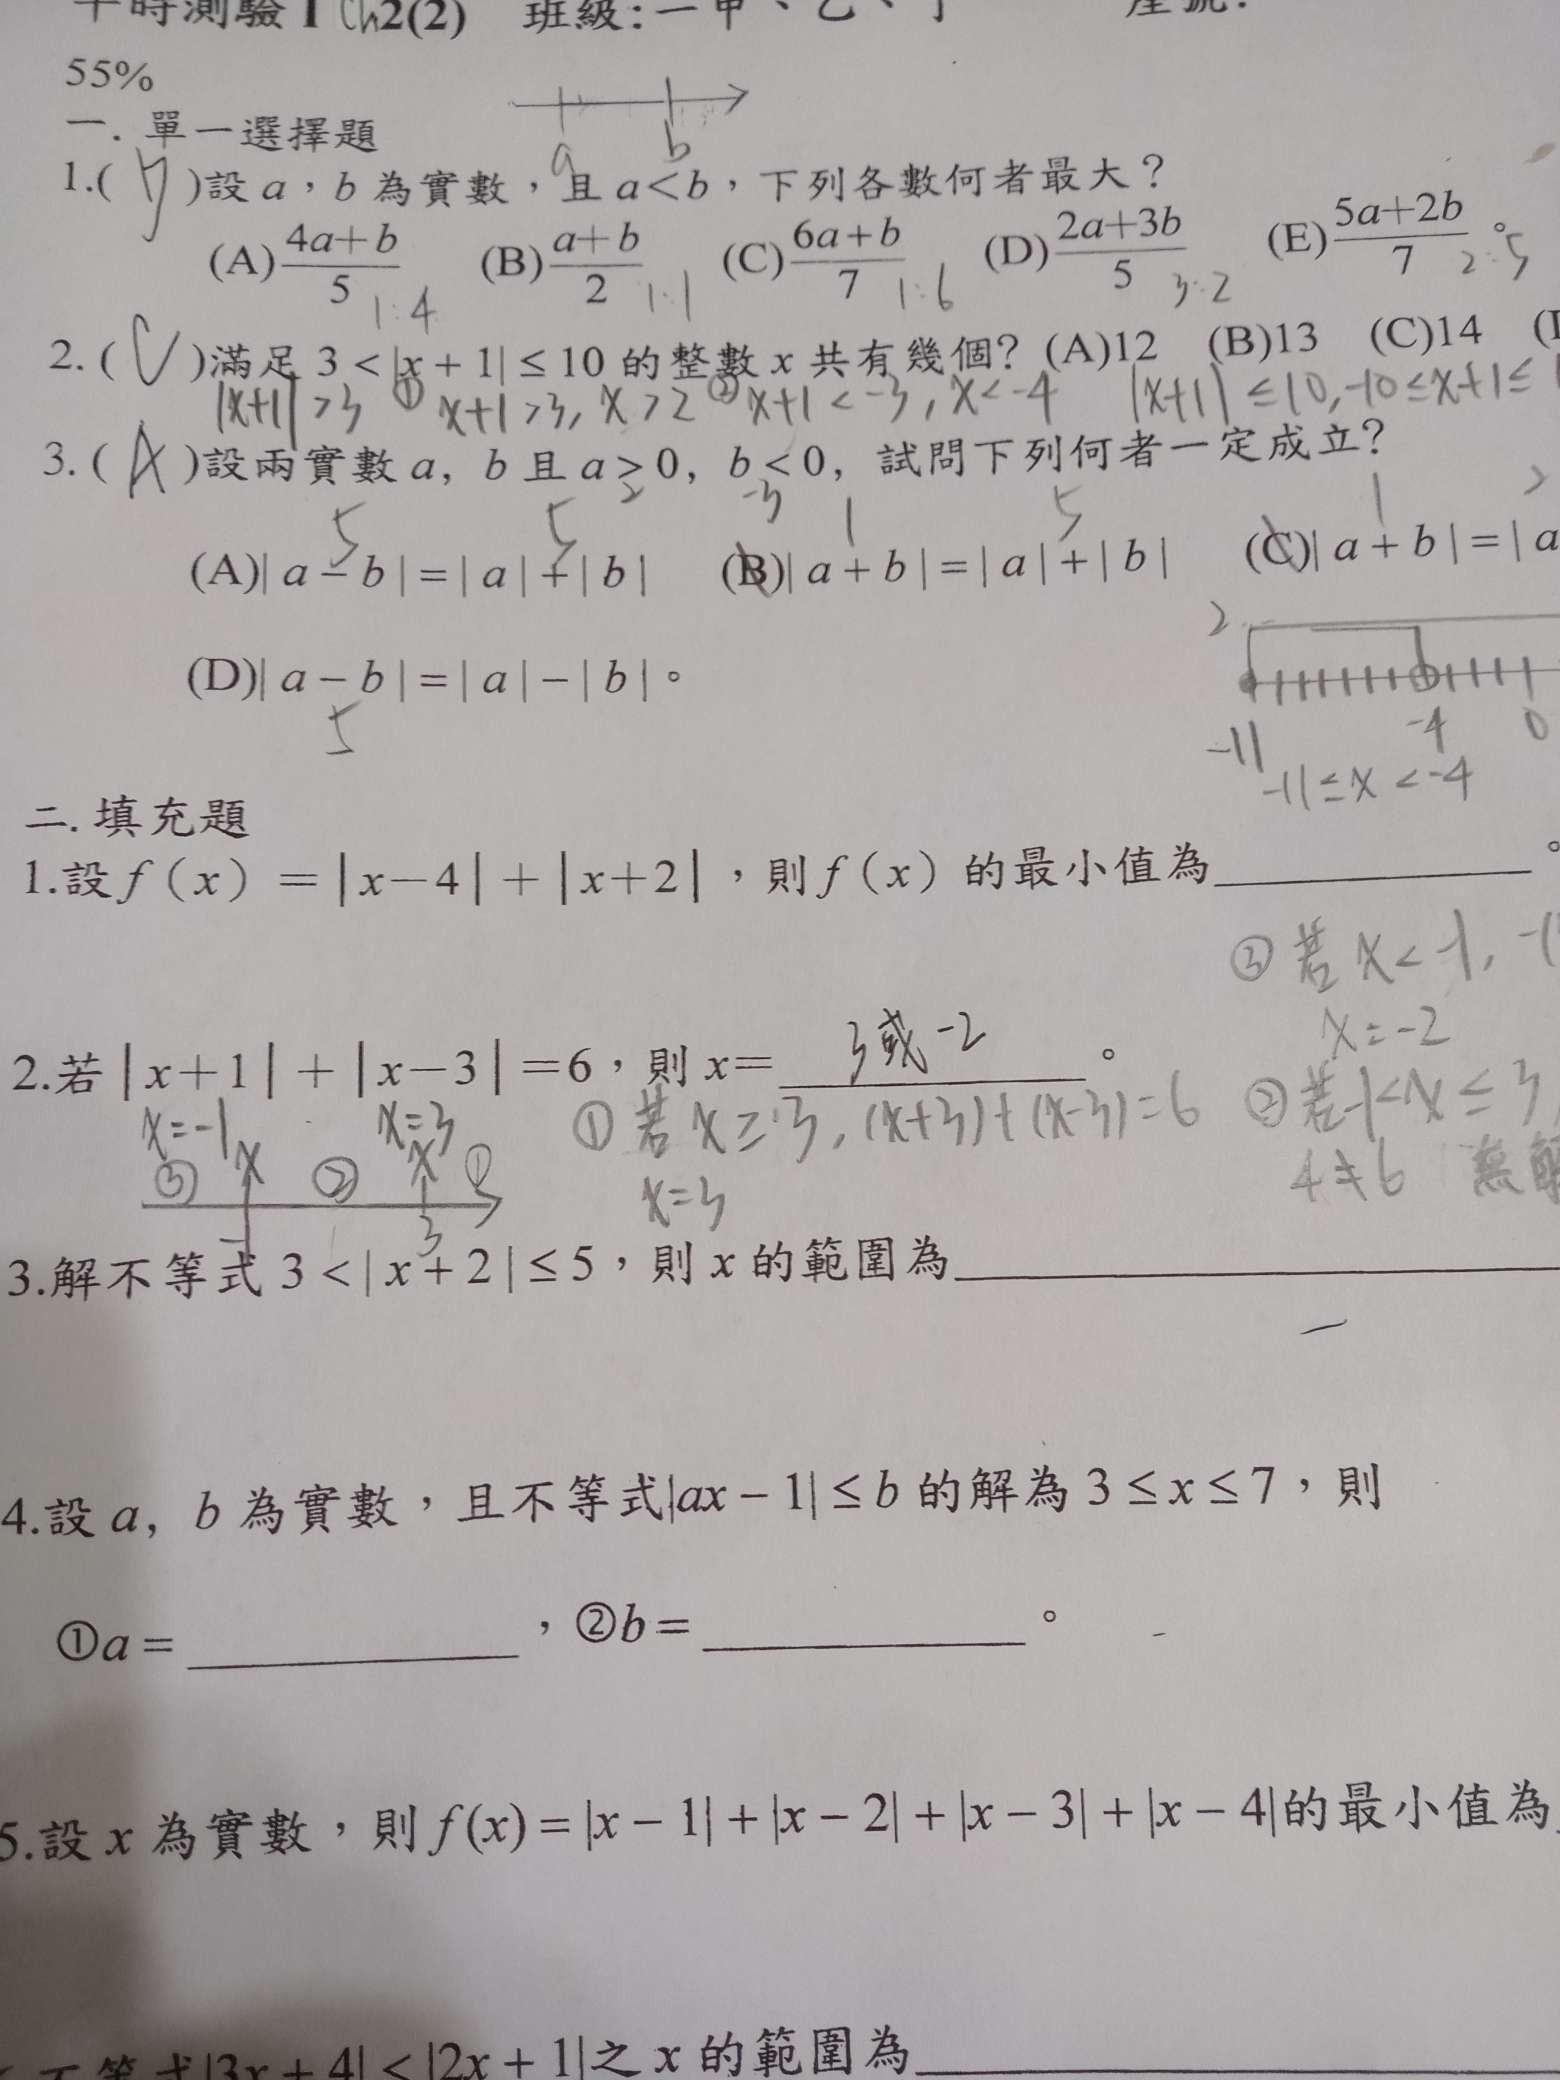 平時測驗 1 Ch2(2) 班級:一甲、乙、丁 座號:
55%
一. 單一選擇題
a b
1.( D )設 a，b 為實數，且 a<b，下列各數何者最大？
(A) 4a+b/5 (B) a+b/2 (C) 6a+b/7 (D) 2a+3b/5 (E) 5a+2b/7 。
1:4 1:1 1:6 3:2 2:5
2. ( C )滿足 3 < |x + 1| ≤ 10 的整數 x 共有幾個? (A)12 (B)13 (C)14
|x+1| >3 ① x+1 >3, x >2 ② x+1 < -3, x < -4 |x+1| ≤10, -10 ≤ x+1 ≤
3. ( A )設兩實數 a, b 且 a > 0, b < 0, 試問下列何者一定成立?
2 -3
5 5 1 5 1
(A)| a − b | = | a | + | b | (B)| a + b | = | a | + | b | (C)| a + b | = | a
2
(D)| a − b | = | a | − | b |。
5
-11 -4 0
-11 ≤ x < -4
二. 填充題
1.設 f（x）= |x−4| + |x+2|，則 f（x）的最小值為 。
③ 若 x < -1,
x = -2
2.若 |x+1| + |x−3| =6，則 x= 3或 -2 。
x=-1 x=3 ① 若 x ≥ 3, (x+3)+(x-3)=6 ② 若-1<x ≤ 3
③ x ② x ① x=3 4≠6 無解
-1 3
3.解不等式 3 < | x + 2 | ≤ 5，則 x 的範圍為
4.設 a, b 為實數，且不等式|ax − 1| ≤ b 的解為 3 ≤ x ≤ 7，則
①a = ，②b = 。
5.設 x 為實數，則 f(x) = |x − 1| + |x − 2| + |x − 3| + |x − 4|的最小值為
不等式|3x + 4| < |2x + 1|之 x 的範圍為